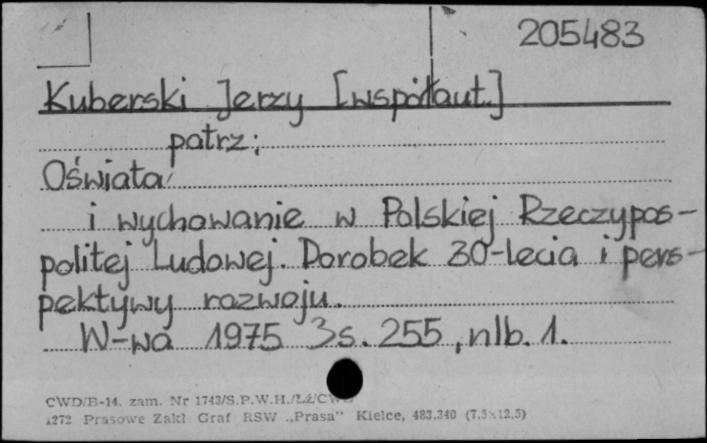 205483
Kuberski Jerzy [współaut.]
patrz:
Oświata
i wychowanie w Polskiej Rzeczypos-
politej Ludowej. Dorobek 30-lecia i pers-
pektywy rozwoju.
W-wa 1975 s. 255, nlb. 1.
CWD/B-14. zam. Nr 1743/S.P.W.H./
Prasowe Zakł Graf RSW „Prasa" Kielce, 483.340 (7,5x12,5)